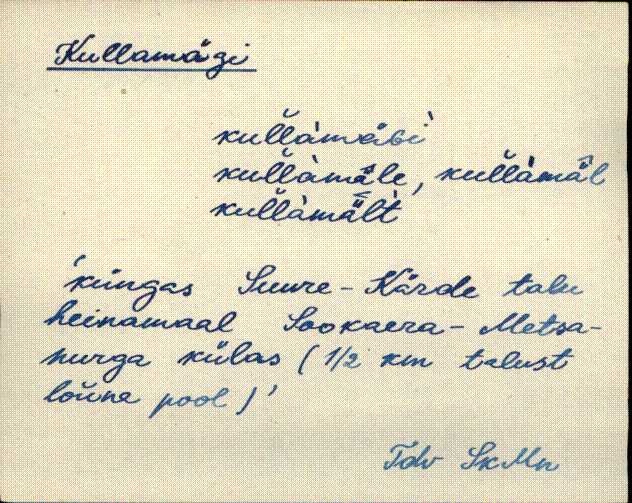 Kullamägi
kul̆l̆àmäɢì
kul̆l̆àmä̀le, kul̆l̆àmä̂l
kul̆l̆àmä̀lt
'küngas Suure-Kärde talu
heinamaal Sookaera-Metsa-
nurga külas (1/2 km talust
lõuna pool)'
Tdv SkMn